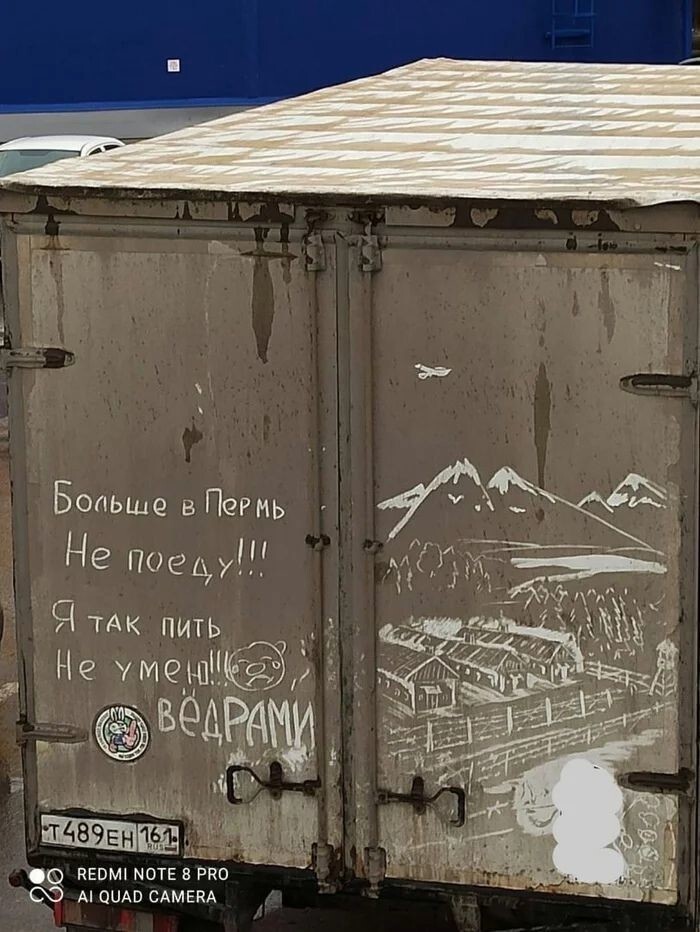 Больше в Пермь
Не поеду!!!
Я так пить
Не умею!!!
ВЁДРАМИ
Т489ЕН 161
RUS
REDMI NOTE 8 PRO
AI QUAD CAMERA